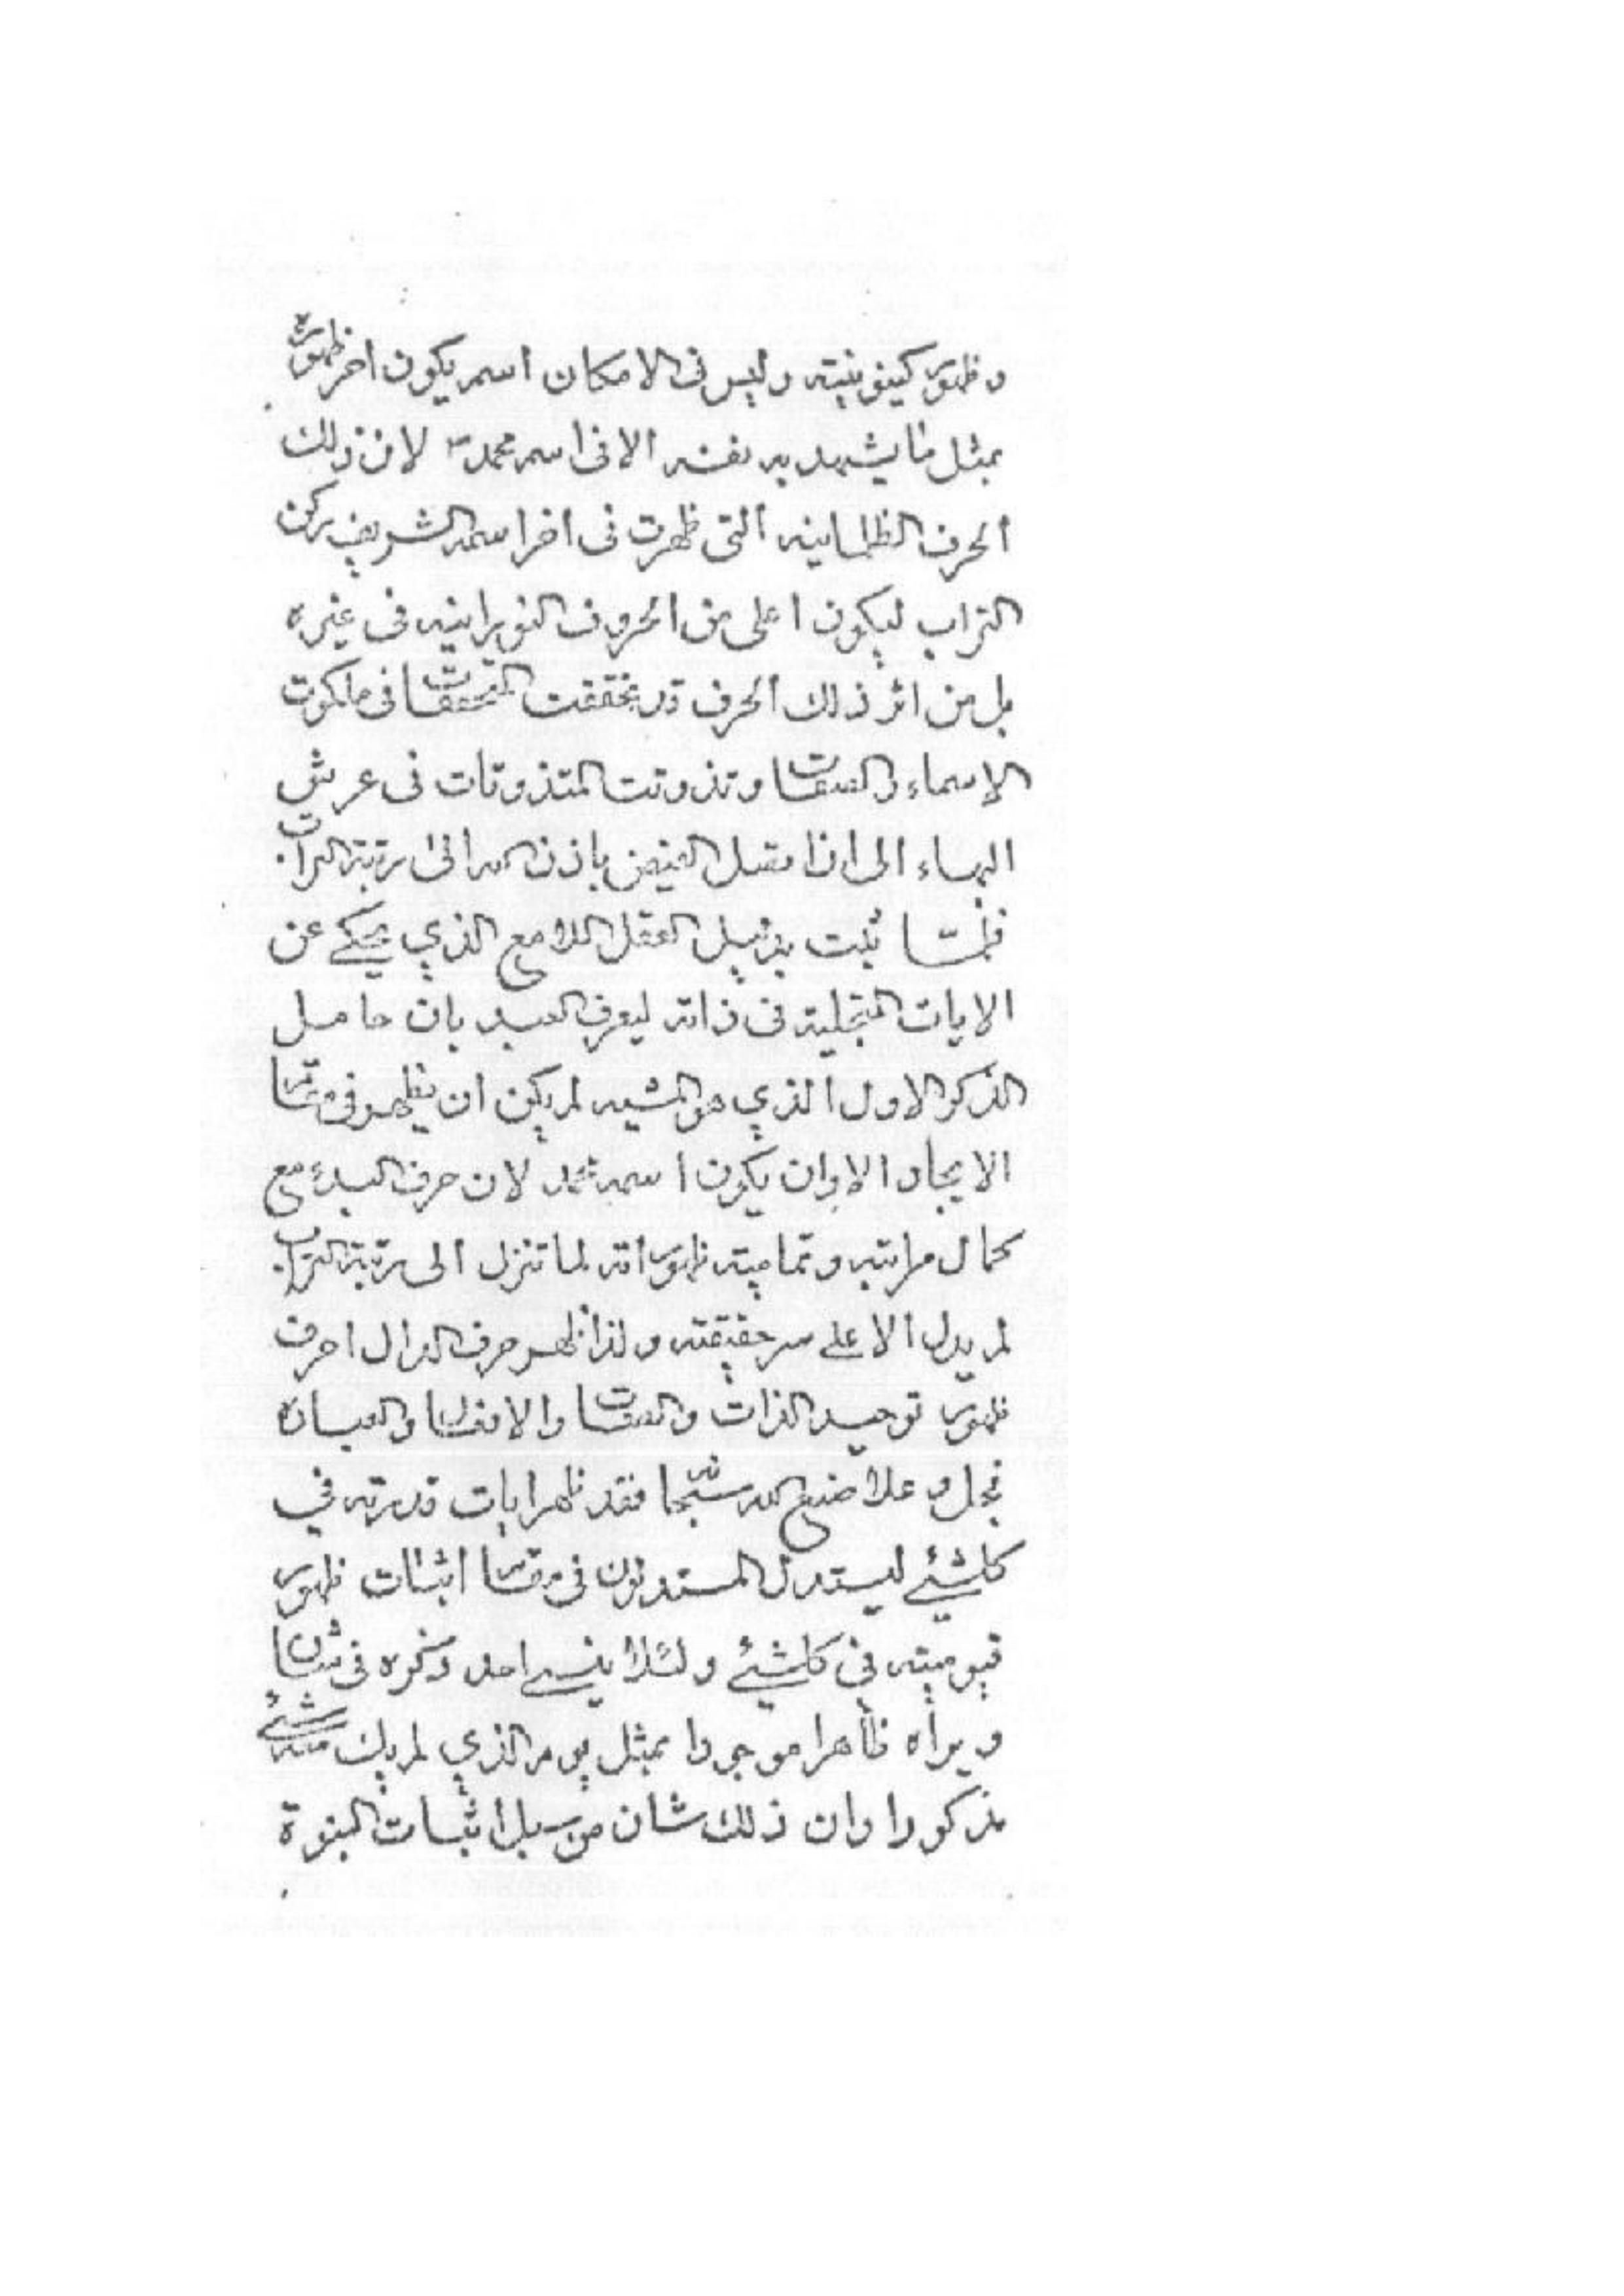 وظهور كينونيته وليس فى الامكان اسم يكون اخر ظهوره
بمثل ما يشهد به نفسه الا فى اسم محمد ص لان ذلك
الحرف الظلمانيه التى ظهرت فى اخر اسمه الشريف ركن
التراب ليكون اعلى من الحروف النورانيه فى غيره
بل من اثر ذلك الحرف قد تحققت المتحققات فى ملكوت
الاسماء والصفات وتذوتت المتذوتات فى عرش
البهاء الى اذا الفيض باذن الله الى رتبة التراب
فلمّا ثبت بدليل العقل اللامع الذي يحكي عن
الايات المتجلية فى ذاته ليعرف العبد بان حامل
الذكر الاول الذي هو المشيه لم يكن ان يظهر فى مقام
الايجاد الا وان يكون اسمه محمد لان حرف البدء مع
كمال مراتبه وتماميته ظهوراته لما تنزل الى رتبة التراب
لم يدل الا على سر حقيقته ولذا ظهر حرف الدال احرف
ظهور توحيد الذات والصفات والافعال والعباده
فجل وعلا صنع الله سبحانه فقد ظهر ايات قدرته في
كلشيئ ليستدل المستدلون فى مقام اثبات ظهور
قيوميته في كلشيئ ولئلا ينسى احد ذكره فى شان
ويراه ظاهرا موجودا بمثل يوم الذي لم يك منه شيئ
مذكورا وان ذلك شان من سبل اثبات النبوة